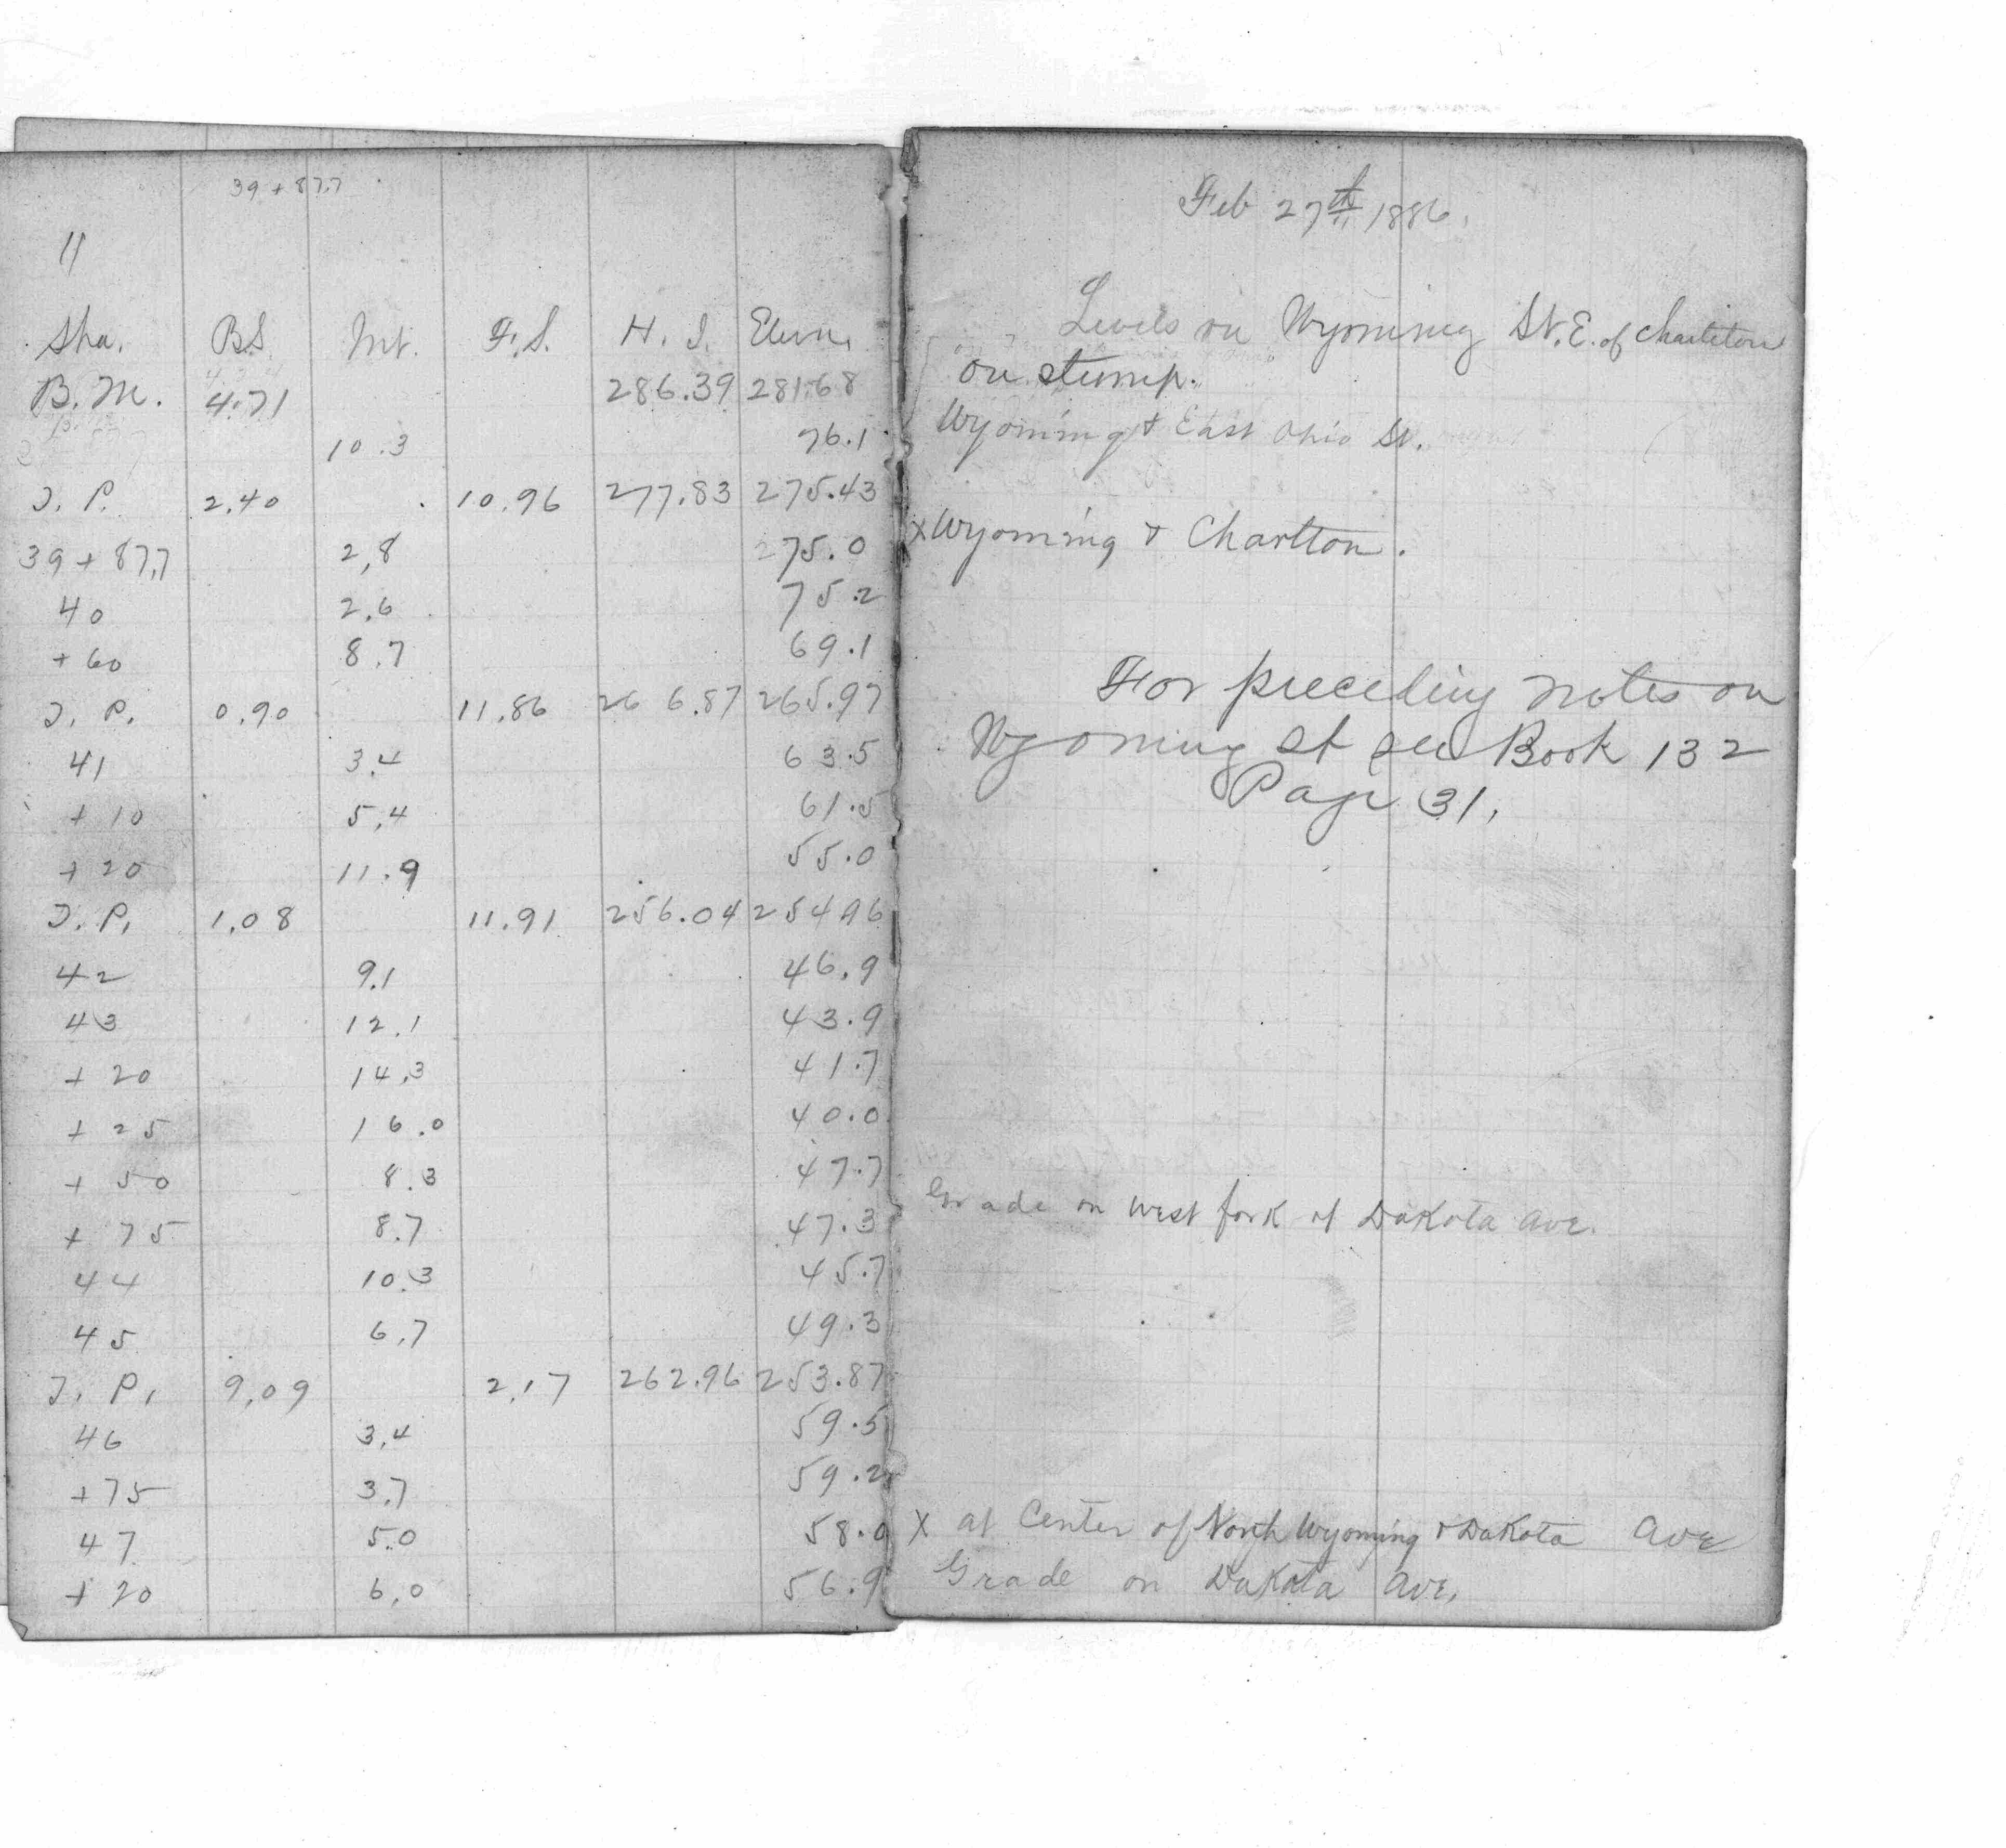 39 + 87.7
11
Sta. B.S. Int. F.S. H.I. Elevn.
B.M. 4.71 286.39 281.68
10.3 76.1
T.P. 2.40 10.96 277.83 275.43
39 + 87.7 2.8 275.0
40 2.6 75.2
+ 60 8.7 69.1
T.P. 0.90 11.86 266.87 265.97
41 3.4 63.5
+ 10 5.4 61.5
+ 20 11.9 55.0
T.P. 1.08 11.91 256.04 254.96
42 9.1 46.9
43 12.1 43.9
+ 20 14.3 41.7
+ 25 16.0 40.0
+ 50 8.3 47.7
+ 75 8.7 47.3
44 10.3 45.7
45 6.7 49.3
T.P. 9.09 2.17 262.96 253.87
46 3.4 59.5
+ 75 3.7 59.2
47 5.0 58.0
+ 20 6.0 56.9
Feb 27th 1886.
Levels on Wyoming St. E. of Charlton
on stump.
Wyoming & East Ohio St.
x Wyoming & Charlton.
For preceding notes on
Wyoming St see Book 132
Page 31.
Grade on west fork of Dakota Ave.
X at Center of North Wyoming & Dakota Ave
Grade on Dakota Ave.